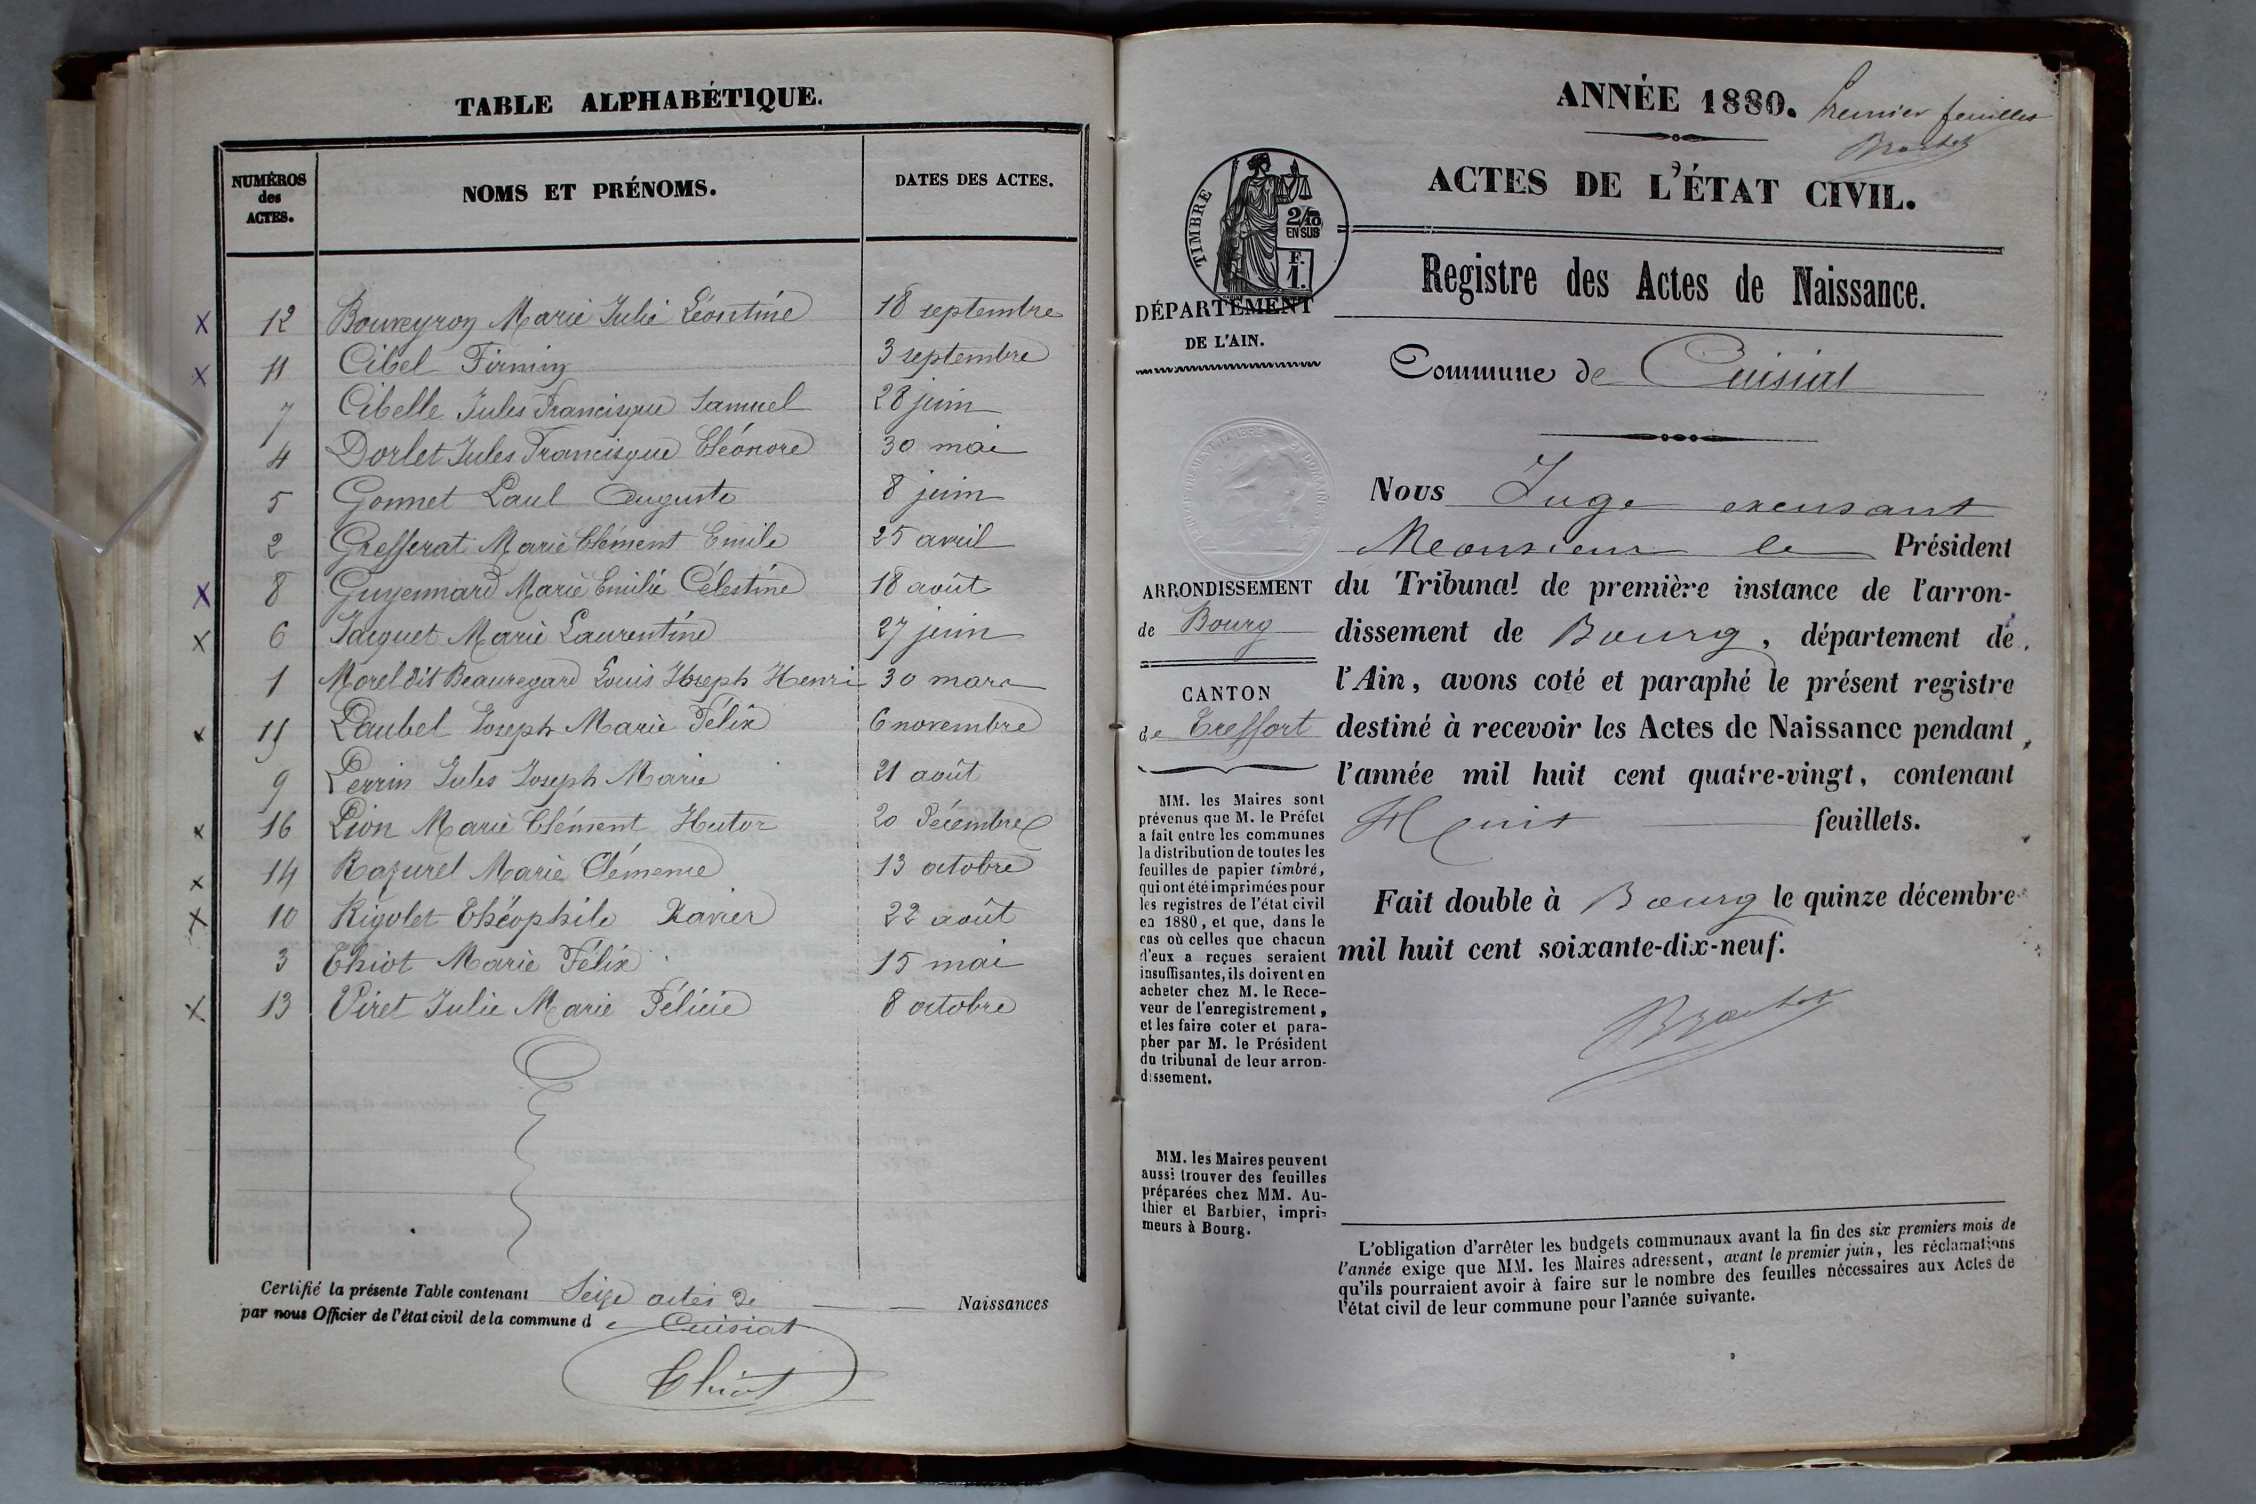 TABLE ALPHABÉTIQUE.
NUMÉROS des ACTES.
NOMS ET PRÉNOMS.
DATES DES ACTES.
x 12 Bouveyron Marie Julie Léontine 18 septembre
x 11 Cibel Firmin 3 septembre
7 Cibelle Jules Francisque Samuel 28 juin
4 Dorlet Jules Francisque Eléonore 30 mai
5 Gonnet Paul Auguste 8 juin
2 Greffferat Marie Clément Emile 25 avril
x 8 Guyennard Marie Emilie Célestine 18 août
x 6 Jacquet Marie Laurentine 27 juin
1 Morel dit Beauregard Louis Joseph Henri 30 mars
x 15 Paubel Joseph Marie Félix 6 novembre
9 Perrin Jules Joseph Marie 21 août
x 16 Pion Marie Clément Hector 20 Décembre
x 14 Razurel Marie Clémence 13 octobre
x 10 Rigolet Théophile Xavier 22 août
3 Thiot Marie Félix 15 mai
x 13 Viret Julie Marie Félicie 8 octobre
Certifié la présente Table contenant Seize actes de Naissances
par nous Officier de l'état civil de la commune de Cuisiat
Thiot
ANNÉE 1880.
Premier feuillet
ACTES DE L'ÉTAT CIVIL.
TIMBRE
2/10
EN SUS
F.
1.
Registre des Actes de Naissance.
DÉPARTEMENT
DE L'AIN.
Commune de Cuisiat
Nous Juge excusant
Monsieur le Président
du Tribunal de première instance de l'arron-
dissement de Bourg, département de
l'Ain, avons coté et paraphé le présent registre
destiné à recevoir les Actes de Naissance pendant
l'année mil huit cent quatre-vingt, contenant
Huit feuillets.
Fait double à Bourg le quinze décembre
mil huit cent soixante-dix-neuf.
ARRONDISSEMENT
de Bourg
CANTON
de Treffort
MM. les Maires sont
prévenus que M. le Préfet
a fait entre les communes
la distribution de toutes les
feuilles de papier timbré,
qui ont été imprimées pour
les registres de l'état civil
en 1880, et que, dans le
cas où celles que chacun
d'eux a reçues seraient
insuffisantes, ils doivent en
acheter chez M. le Rece-
veur de l'enregistrement,
et les faire coter et para-
pher par M. le Président
du tribunal de leur arron-
dissement.
MM. les Maires peuvent
aussi trouver des feuilles
préparées chez MM. Au-
thier et Barbier, impri-
meurs à Bourg.
L'obligation d'arrêter les budgets communaux avant la fin des six premiers mois de
l'année exige que MM. les Maires adressent, avant le premier juin, les réclamations
qu'ils pourraient avoir à faire sur le nombre des feuilles nécessaires aux Actes de
l'état civil de leur commune pour l'année suivante.